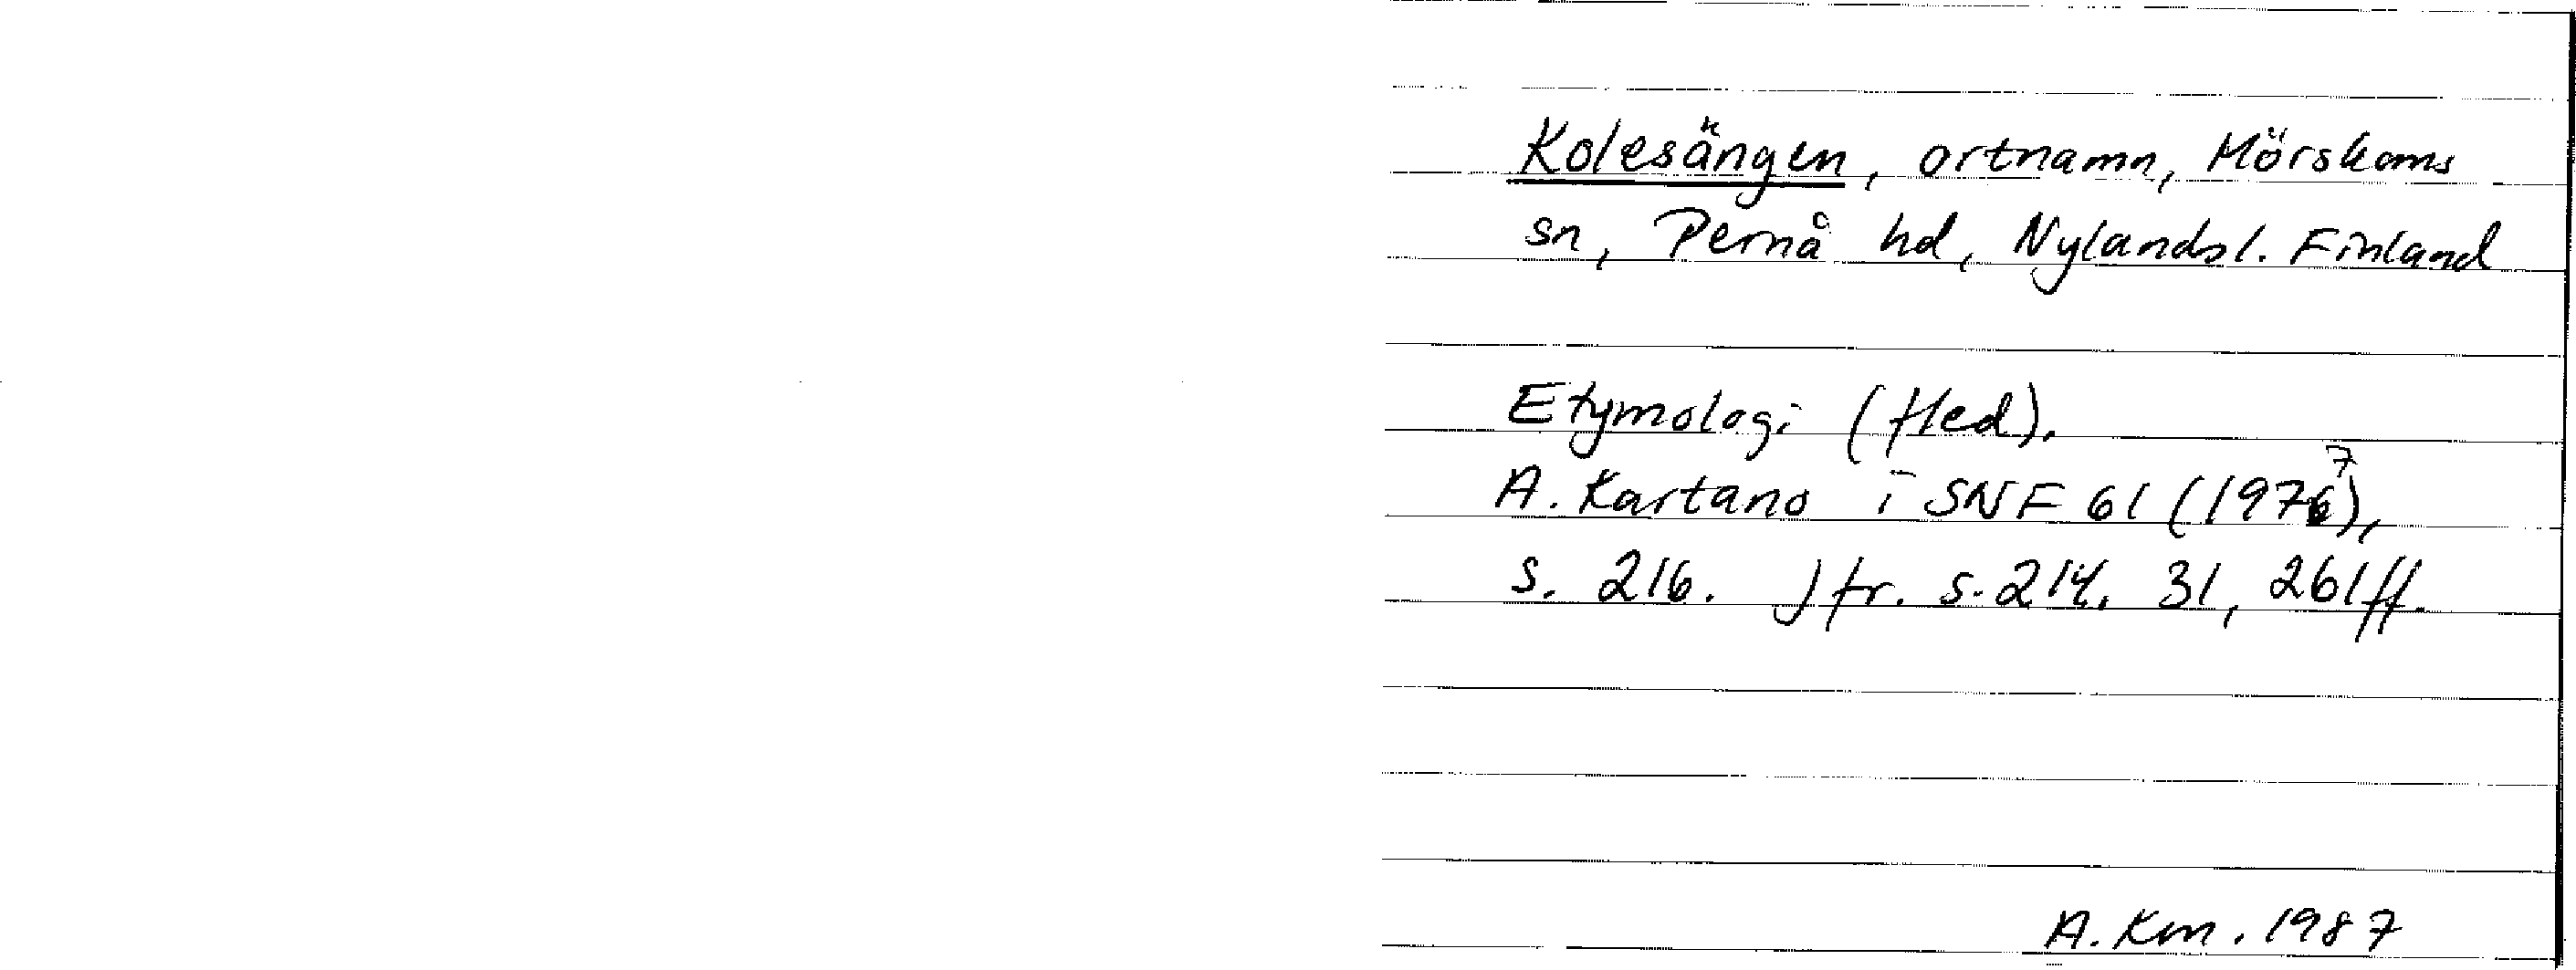 Kolesängen, ortnamn, Mörskoms
sn, Pernå hd, Nylandsl. Finland
Etymologi (fled).
A. Kartano i SNF 61 (1977),
s. 216. Jfr. s. 214, 31, 261 ff.
A. Km. 1987